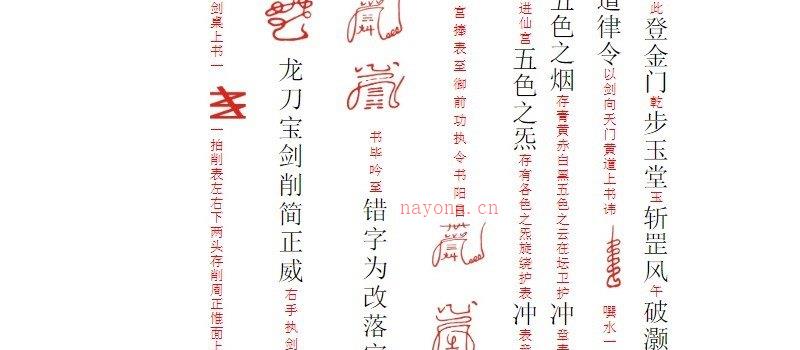 此登金门乾步玉堂玉斩罡风午破灏
道律令以剑向天门黄道上书讳噀水一
五色之烟存青黄赤白黑五色之云在坛卫护冲章表
进仙宫五色之炁存有各色之炁旋绕护表冲表章
宫捧表至御前功执令书阳昌
书毕吟至错字为改落字
龙刀宝剑削简正威右手执剑
剑桌上书一一拍削表左右下两头存削周正惟面上
nayona.cn